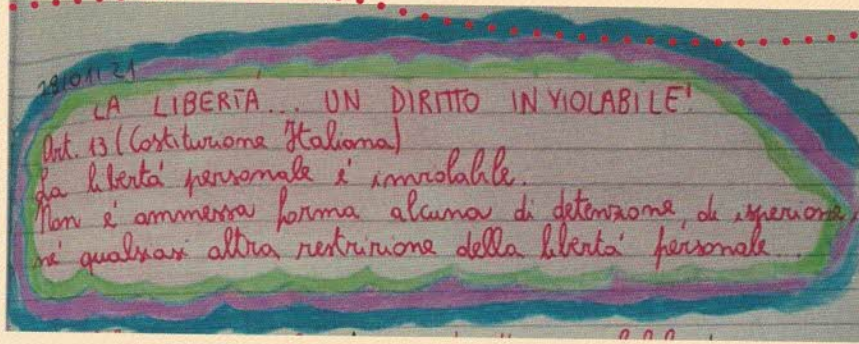 28/01/21
LA LIBERTÀ... UN DIRITTO INVIOLABILE!
Art. 13 (Costituzione Italiana)
La libertà personale è inviolabile.
Non è ammessa forma alcuna di detenzione, di ispezione,
né qualsiasi altra restrizione della libertà personale...